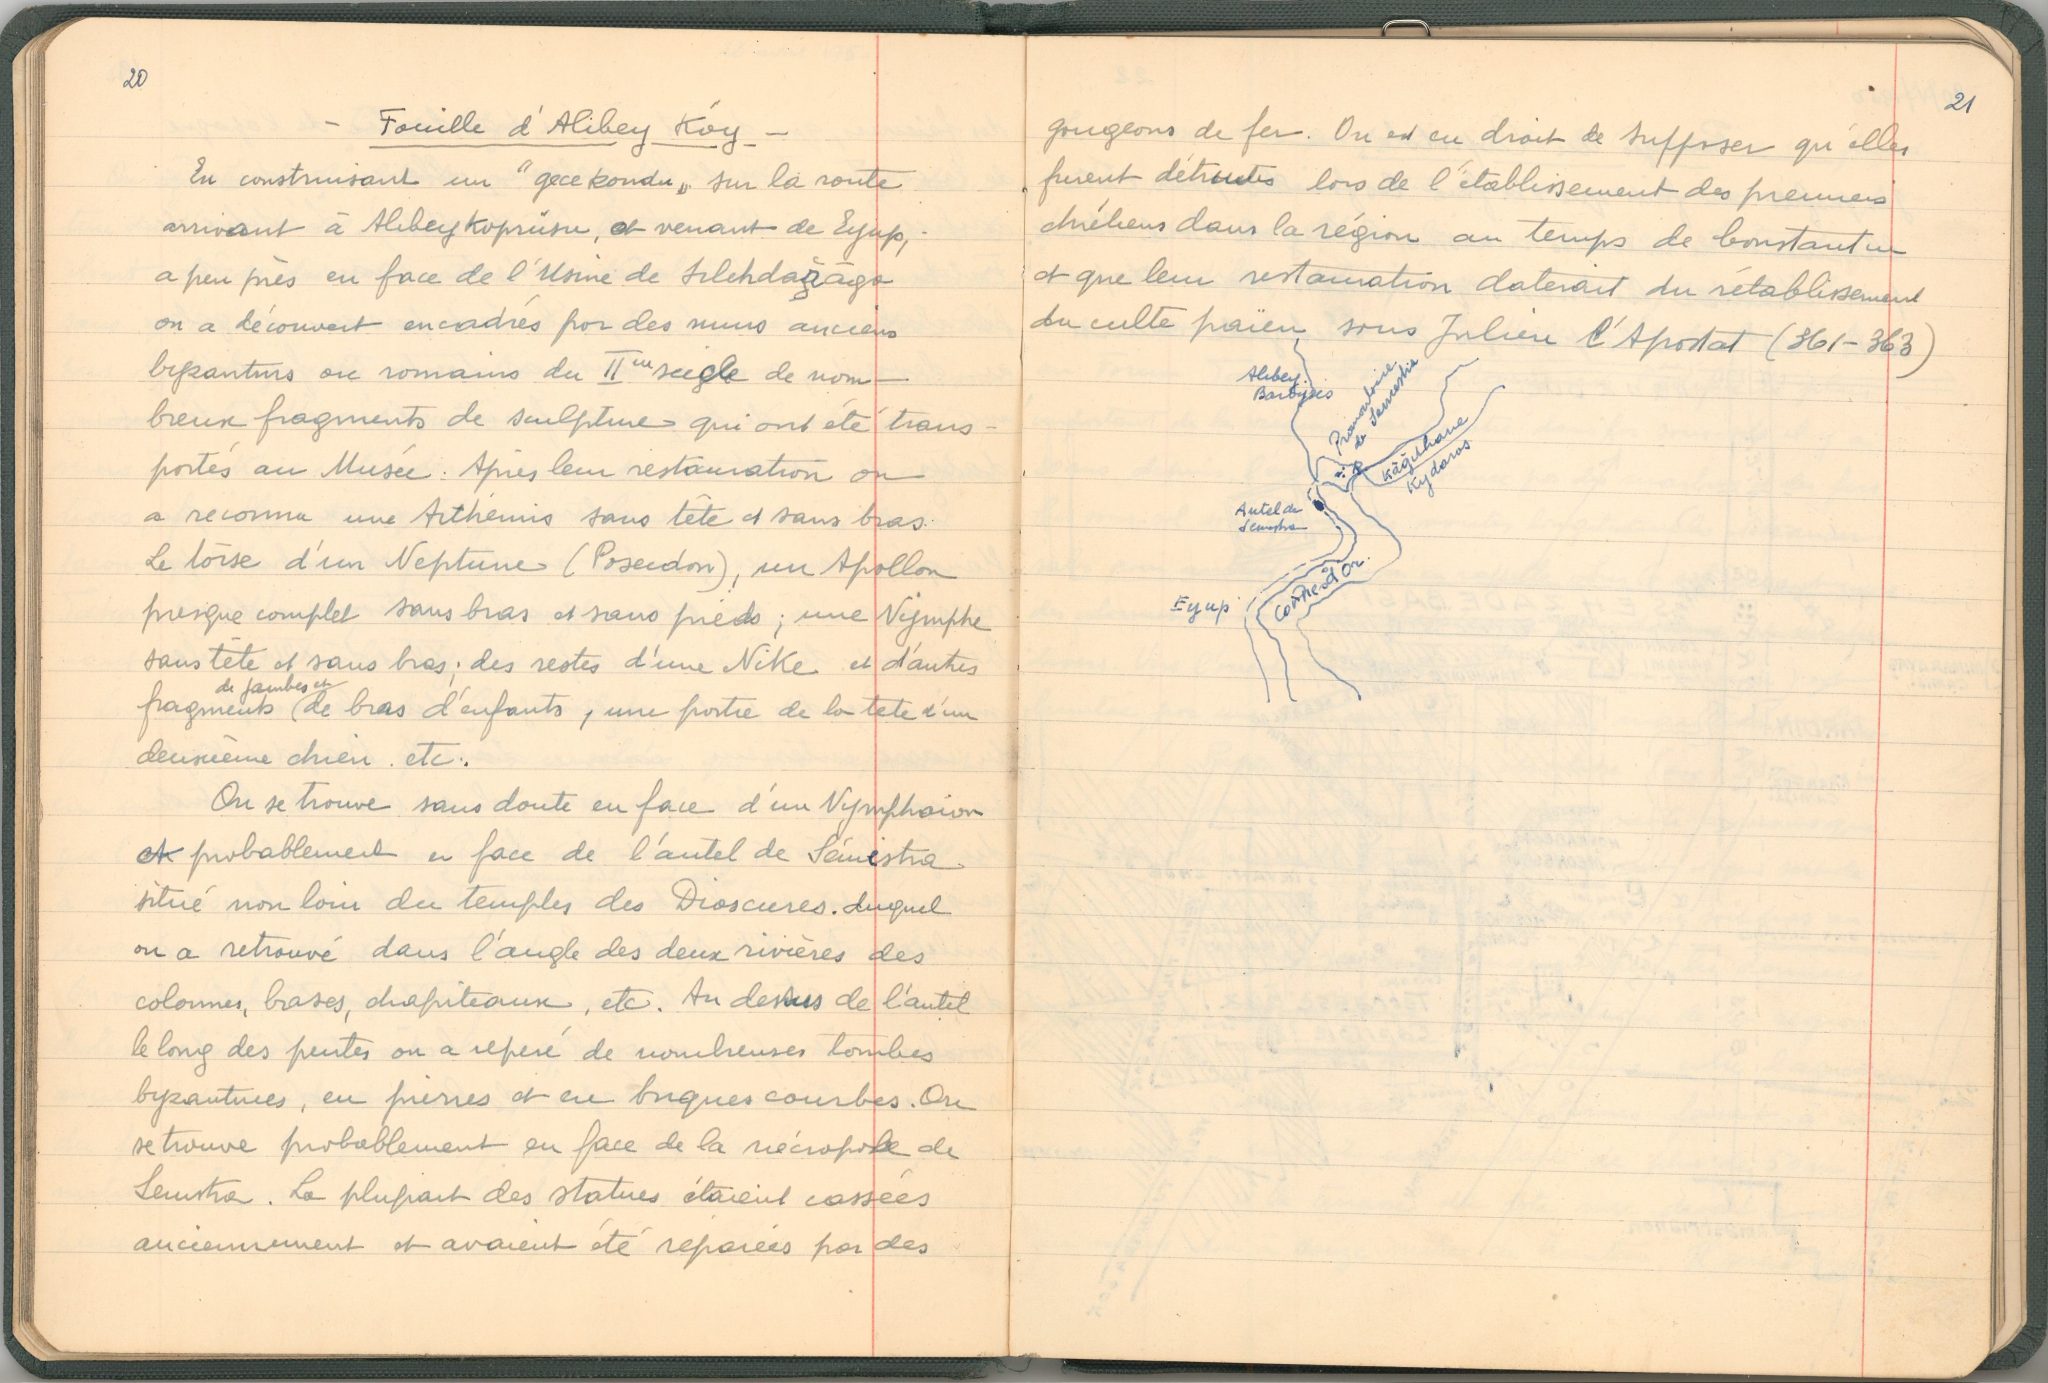 20
- Fouille d'Alibey Köy -
En construisant un "gecekondu„ sur la route
arrivant à Alibeykoprüsu, et venant de Eyup,
a peu près en face de l'Usine de Silehdarağa
on a découvert encadrés par des murs anciens
byzantins ou romains du IIme siègle de nom-
breux fragments de sculptures qui ont été trans-
portés au Musée. Après leur restauration on
a reconnu une Arthémis sans tête et sans bras.
Le torse d'un Neptune (Poseidon), un Apollon
presque complet sans bras et sans pieds ; une Nymphe
sans tête et sans bras ; des restes d'une Nike et d'autres
de jambes et
fragments (de bras d'enfants, une partie de la tete d'un
deuxième chien. etc..
On se trouve sans doute en face d'un Nymphaion
et probablement en face de l'autel de Sémistra
situé non loin du temples des Dioscures. duquel
on a retrouvé dans l'angle des deux rivières des
colonnes, bases, chapiteaux, etc. Au dessus de l'autel
le long des pentes on a reperé de nombreuses tombes
byzantines, en pierres et en briques courbes. On
se trouve probablement en face de la nécropole de
Semstra. La plupart des statues étaient cassées
anciennement et avaient été réparées par des
21
gougeons de fer. On est en droit de supposer qu'elles
furent détruites lors de l'établissement des premiers
chrétiens dans la région au temps de Constantin
et que leur restauration daterait du rétablissement
du culte païen sous Julien l'Apostat (361-363)
Alibey
Barbyses
Promontoire
de Semestra
Kâğithane
Kydaros
Autel de
Semestra
Corne d'Or
Eyup